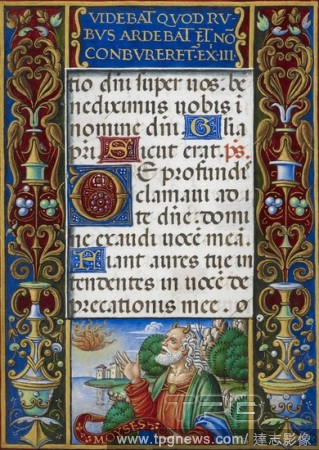 VIDEBAT QVOD RV-
BVS ARDEBAT ET NŌ
CONBVRERET·EX·III·
tio dñi super uos. be
nediximus uobis ī
nomine dñi. Glia
pr̄i. Sicut erat. ps.
DE profundis
clamaui ad te
dñe: domi
ne exaudi uocē mea.
Fiant aures tue in
tendentes in uocē de
precationis mee. Q
MOYSES
TPG
www.tpgnews.com/達志影像